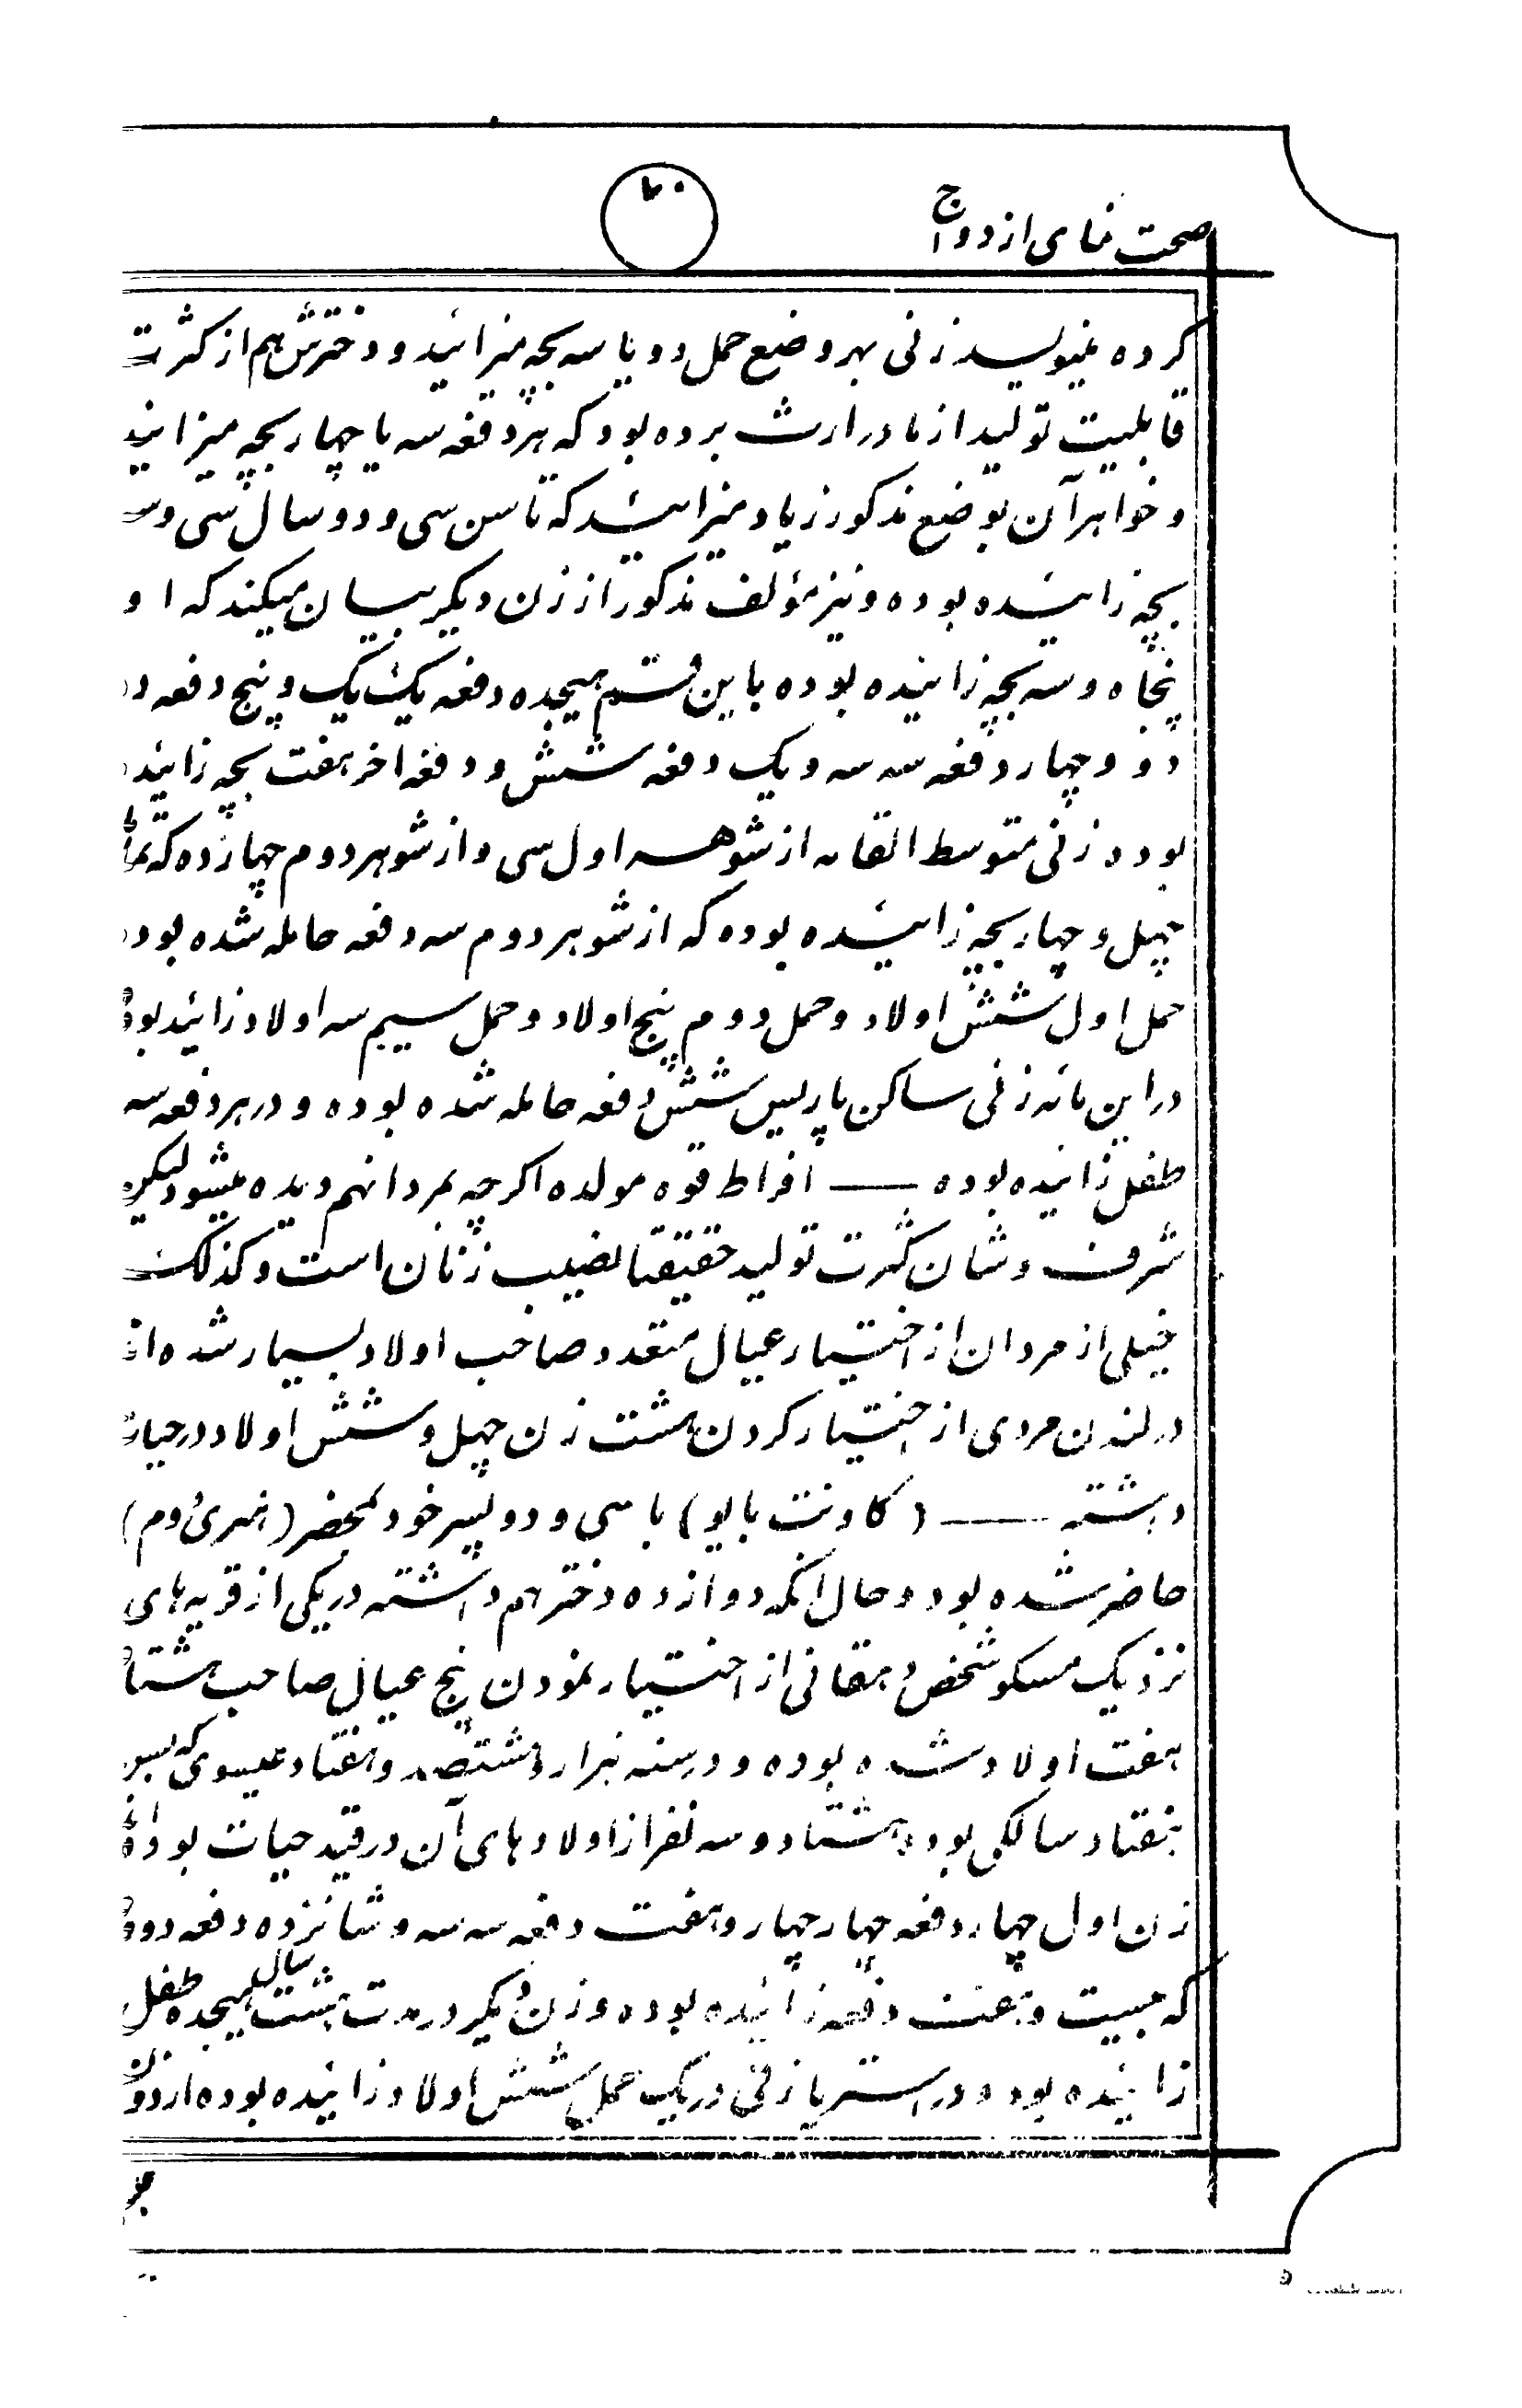 صحت نمای ازدواج
کرده مینویسد زنی بهر وضع حمل دو یا سه بچه میزائید و دخترش هم از کثرت
قابلیت تولید از مادر ارث برده بود که هر دفعه سه یا چهار بچه میزائید
و خواهر آن بوضع مذکور زیاد میزائید که تا سن سی و دو سال سی و سه
بچه زائیده بوده و نیز مؤلف مذکور از زن دیگر بیان میکند که او
پنجاه و سه بچه زائیده بوده باین قسم هیجده دفعه یک یک و پنج دفعه دو
دو و چهار دفعه سه سه و یک دفعه شش و دفعه اخر هفت بچه زائیده
بوده زنی متوسط القامه از شوهر اول سی و از شوهر دوم چهارده که تماماً
چهل و چهار بچه زائیده بوده که از شوهر دوم سه دفعه حامله شده بود
حمل اول شش اولاد و حمل دوم پنج اولاد و حمل سیم سه اولاد زائید بود
در این مائه زنی ساکن پاریس شش دفعه حامله شده بوده و در هر دفعه سه
طفل زائیده بوده —— افراط قوه مولده اکرچه بمردانهم دیده میشود لیکن
شرف و شان کثرت تولید حقیقتا نصیب زنان است و کذلک
خیلی از مردان از اختیار عیال متعدد صاحب اولاد بسیار شده اند
در لندن مردی از اختیار کردن هشت زن چهل و شش اولاد در حیات
داشته —— (کاونت بابو) با سی و دو پسر خود بمحضر (هنری دوم)
حاضر شده بود و حال انکه دوازده دختر هم داشته در یکی از قریه های
نزدیک مسکو شخص دهقانی از اختیار نمودن پنج عیال صاحب هشتاد
هفت اولاد شده بوده و در سنه هزار و هشتصد و هفتاد عیسوی که بسن
هفتاد سالکی بود هشتاد و سه نفر از اولاد های آن در قید حیات بوده از
زن اول چهار دفعه چهار چهار و هفت دفعه سه سه و شانزده دفعه دو دو
که بیست و هفت دفعه زائیده بوده و زن دیگر در مدت هشت سال هیجده طفل
زائیده بود و در استریا زنی در یک حمل شش اولاد زائیده بوده از دو زن